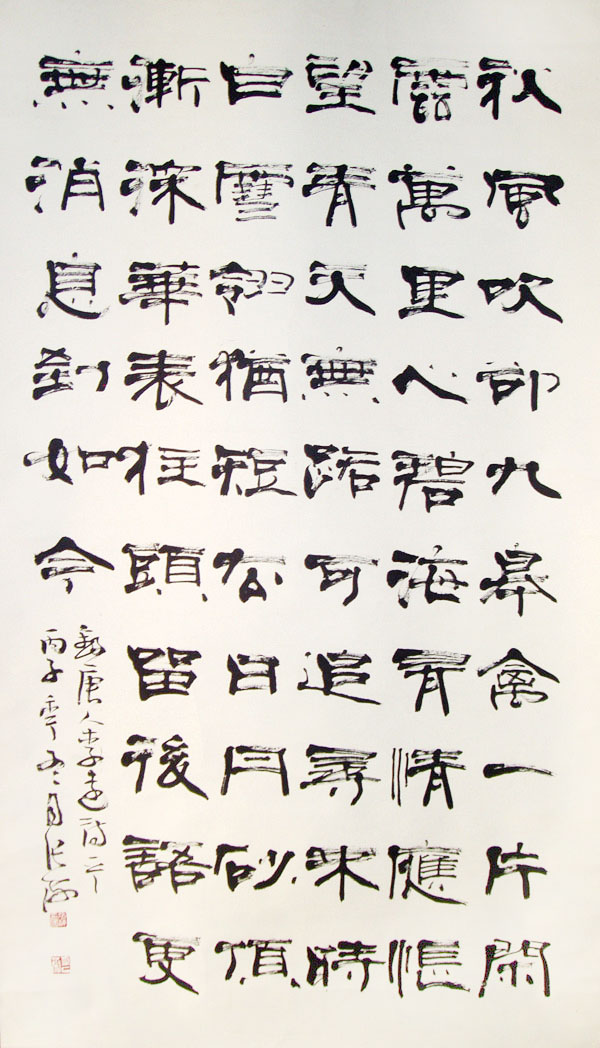 秋風吹却九皋禽一片閑
雲萬里心碧海有情應悵
望青天無路可追尋来時
白雪翎猶短去日丹砂頂
漸深華表柱頭留後語更
無消息到如今
唐人李遠詩之一
丙子年五月張海